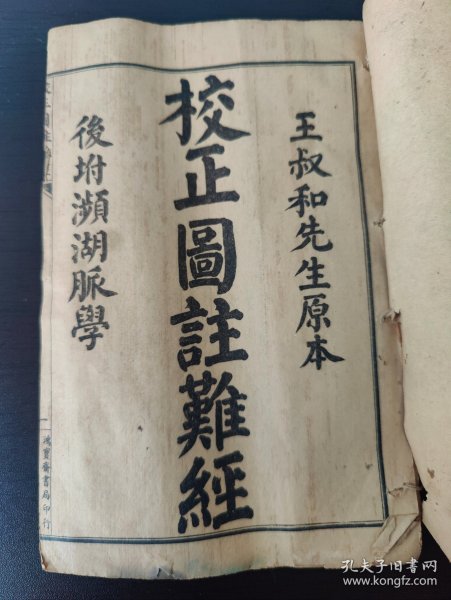 王叔和先生原本
校正圖註難經
後坿瀕湖脈學
鴻寶齋書局印行
孔夫子旧书网
www.kongfz.com